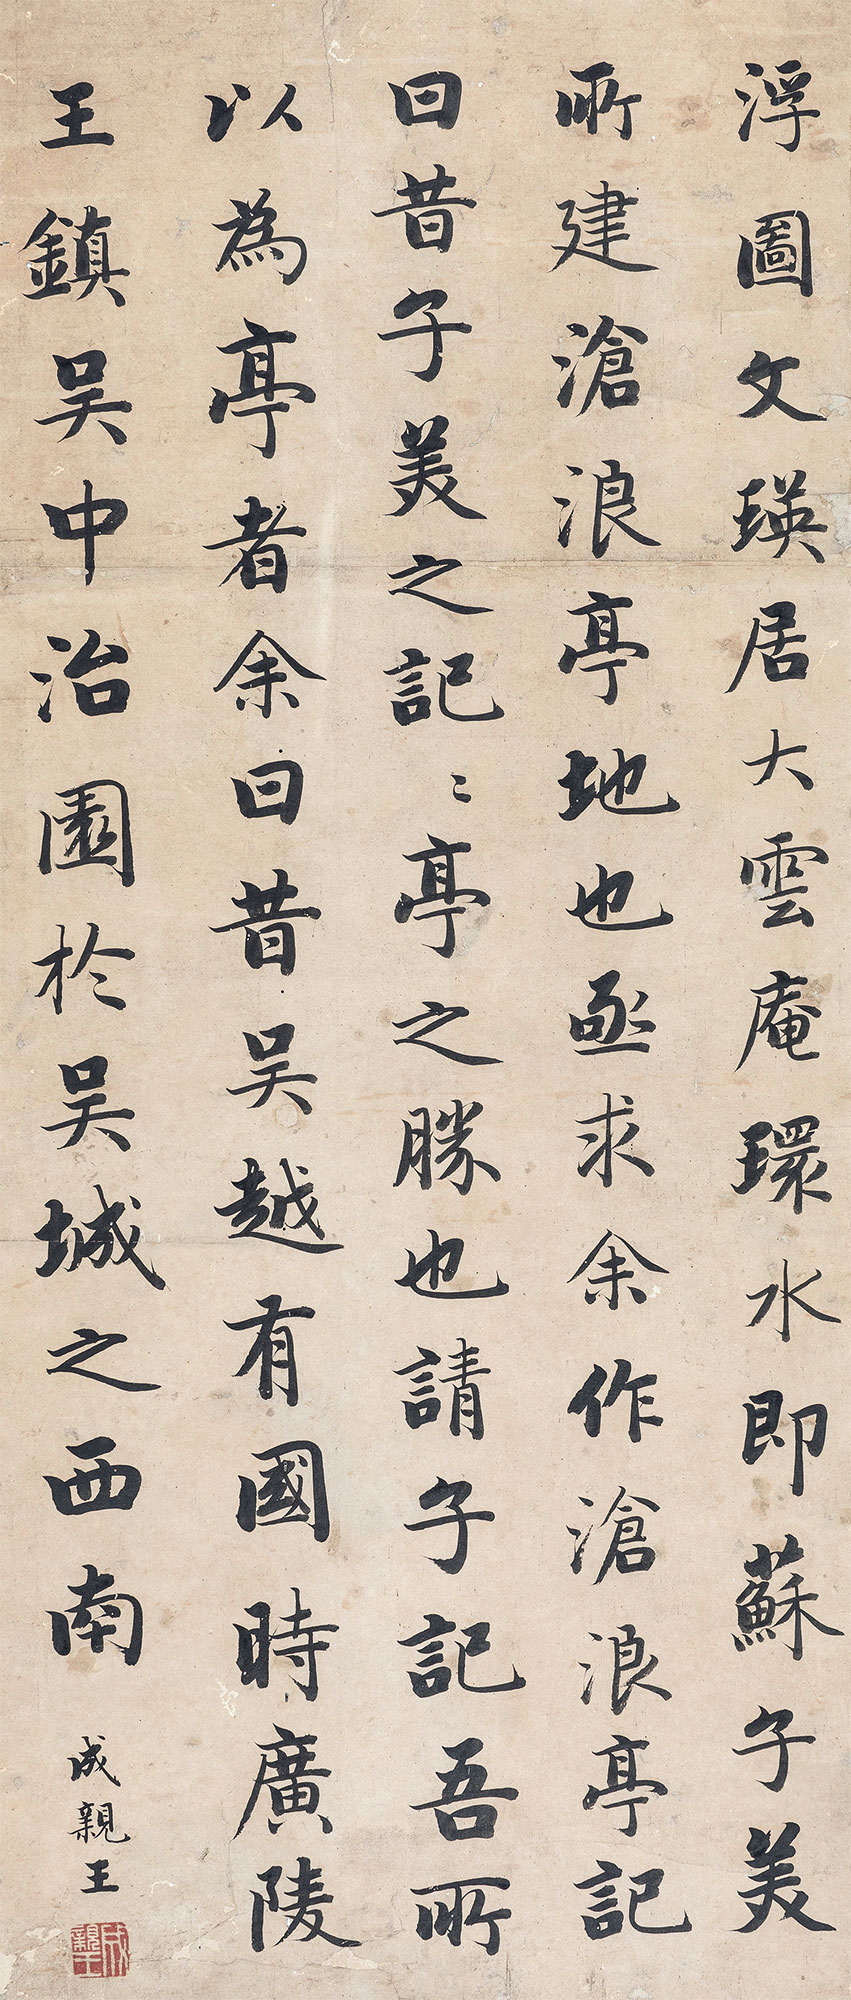 浮圖文瑛居大雲庵環水即蘇子美
所建滄浪亭地也亟求余作滄浪亭記
曰昔子美之記〻亭之勝也請子記吾所
以為亭者余曰昔吳越有國時廣陵
王鎮吳中治園於吳城之西南
成親王
成親王